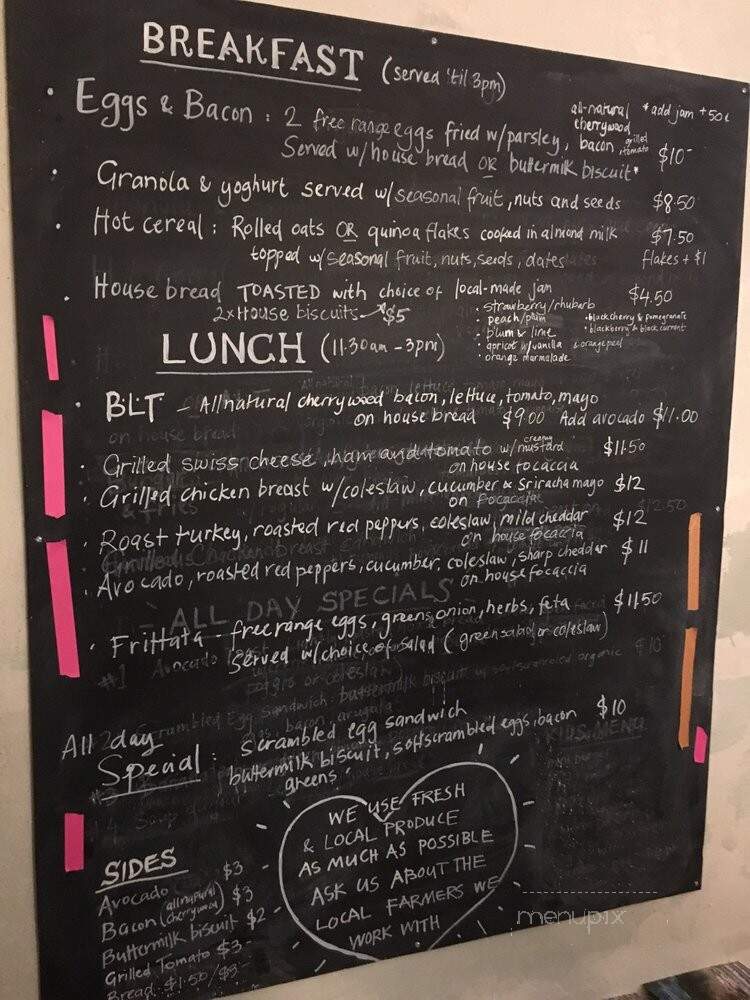 BREAKFAST (served 'til 3pm)
Eggs & Bacon : 2 free range eggs fried w/parsley, all-natural cherrywood bacon, grilled tomato $10-
* add jam +50¢
Served w/house bread OR buttermilk biscuit*
Granola & yoghurt served w/seasonal fruit, nuts and seeds $8.50
Hot cereal : Rolled oats OR quinoa flakes cooked in almond milk $7.50
topped w/seasonal fruit, nuts, seeds, dates flakes + $1
House bread TOASTED with choice of local-made jam $4.50
2x House biscuits $5
· strawberry/rhubarb
· peach/plum · black cherry & pomegranate
· plum & lime · blackberry & black currant
· apricot w/vanilla & orange peel
· orange marmalade
LUNCH (11.30am - 3pm)
BLT - All natural cherrywood bacon, lettuce, tomato, mayo
on house bread $9.00 Add avocado $11.00
Grilled swiss cheese, ham and tomato w/creamy mustard $11.50
on house focaccia
Grilled chicken breast w/coleslaw, cucumber & Sriracha mayo $12
on focaccia
Roast turkey, roasted red peppurs, coleslaw, mild cheddar $12
on house focaccia
Avocado, roasted red peppers, cucumber, coleslaw, sharp cheddar $11
on house focaccia
ALL DAY SPECIALS
Frittata - free range eggs, greens, onion, herbs, feta $11.50
Served w/choice of salad (green salad or coleslaw)
All day
Special : scrambled egg sandwich $10
buttermilk biscuit, soft scrambled eggs, bacon
greens.
KIDS MENU
WE USE FRESH
& LOCAL PRODUCE
AS MUCH AS POSSIBLE
ASK US ABOUT THE
LOCAL FARMERS WE
WORK WITH
SIDES
Avocado $3-
Bacon (all natural cherrywood) $3
Buttermilk biscuit $2
Grilled Tomato $3-
Bread $1.50/$3-
menupix